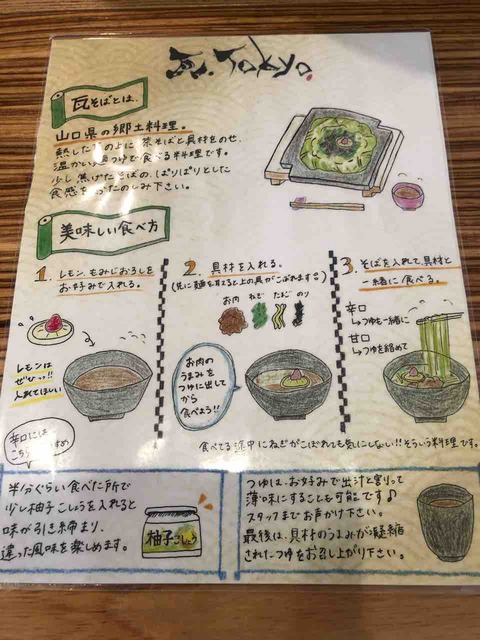 瓦そばとは、
山口県の郷土料理。
熱した の上に茶そばと具材をのせ、
温かい つゆで食べる料理です。
少し焦げたそばの、ぱりぱりとした
食感を のたのしみ下さい。
美味しい食べ方
1. レモン、もみじおろしを
お好みで入れる。
レモンは
ぜひっ!!
入れてほしい
2. 具材を入れる。
お肉 ねぎ たまご のり
お肉の
うまみを
つゆに出して
から
食べよう!!
3. そばを入れて具材と
一緒に食べる。
辛口
つゆを一緒に
甘口
つゆを絡めて
食べてる途中にねぎがこぼれても気にしない!!そういう料理です。
辛口には
こちら すめ
半分ぐらい食べた所で
少し柚子こしょうを入れると
味が引き締まり、
違った風味を楽しめます。
柚子こしょう
つゆは、お好みで出汁と割って
薄味にすることも可能です♪
スタッフまでお声かけ下さい。
最後は、具材のうまみが凝縮
されたつゆをお召し上がり下さい。